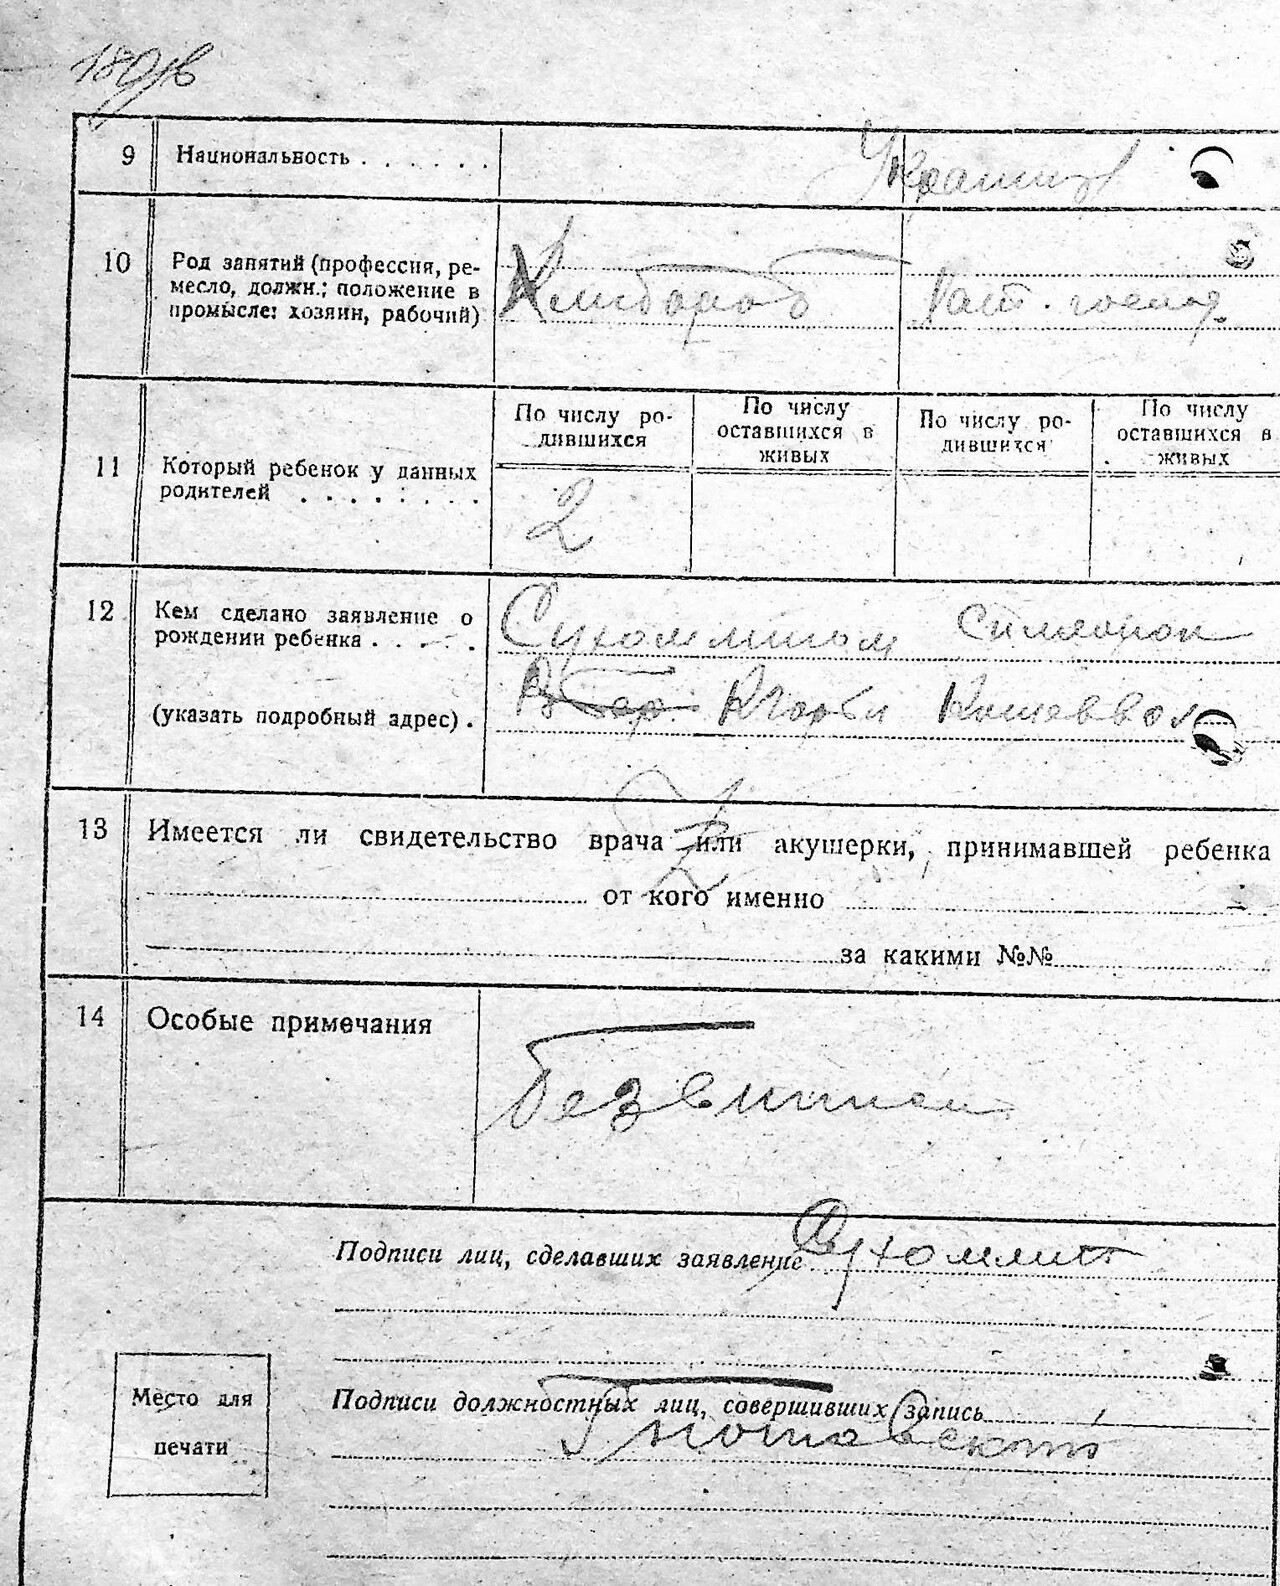 9 Национальность . . . . . . Украинц
10 Род занятий (профессия, ре-
месло, должн.; положение в
промысле: хозяин, рабочий)
Хлибороб
11 Который ребенок у данных
родителей . . . . . . . .
По числу ро-
дившихся
По числу
оставшихся в
живых
По числу ро-
дившихся
По числу
оставшихся в
живых
2
12 Кем сделано заявление о
рождении ребенка . . . . .
(указать подробный адрес) .
Сухомлином
13 Имеется ли свидетельство врача или акушерки, принимавшей ребенка
от кого именно
за какими №№
14 Особые примечания
Подписи лиц, сделавших заявление Сухомлин
Место для
печати
Подписи должностных лиц, совершивших запись